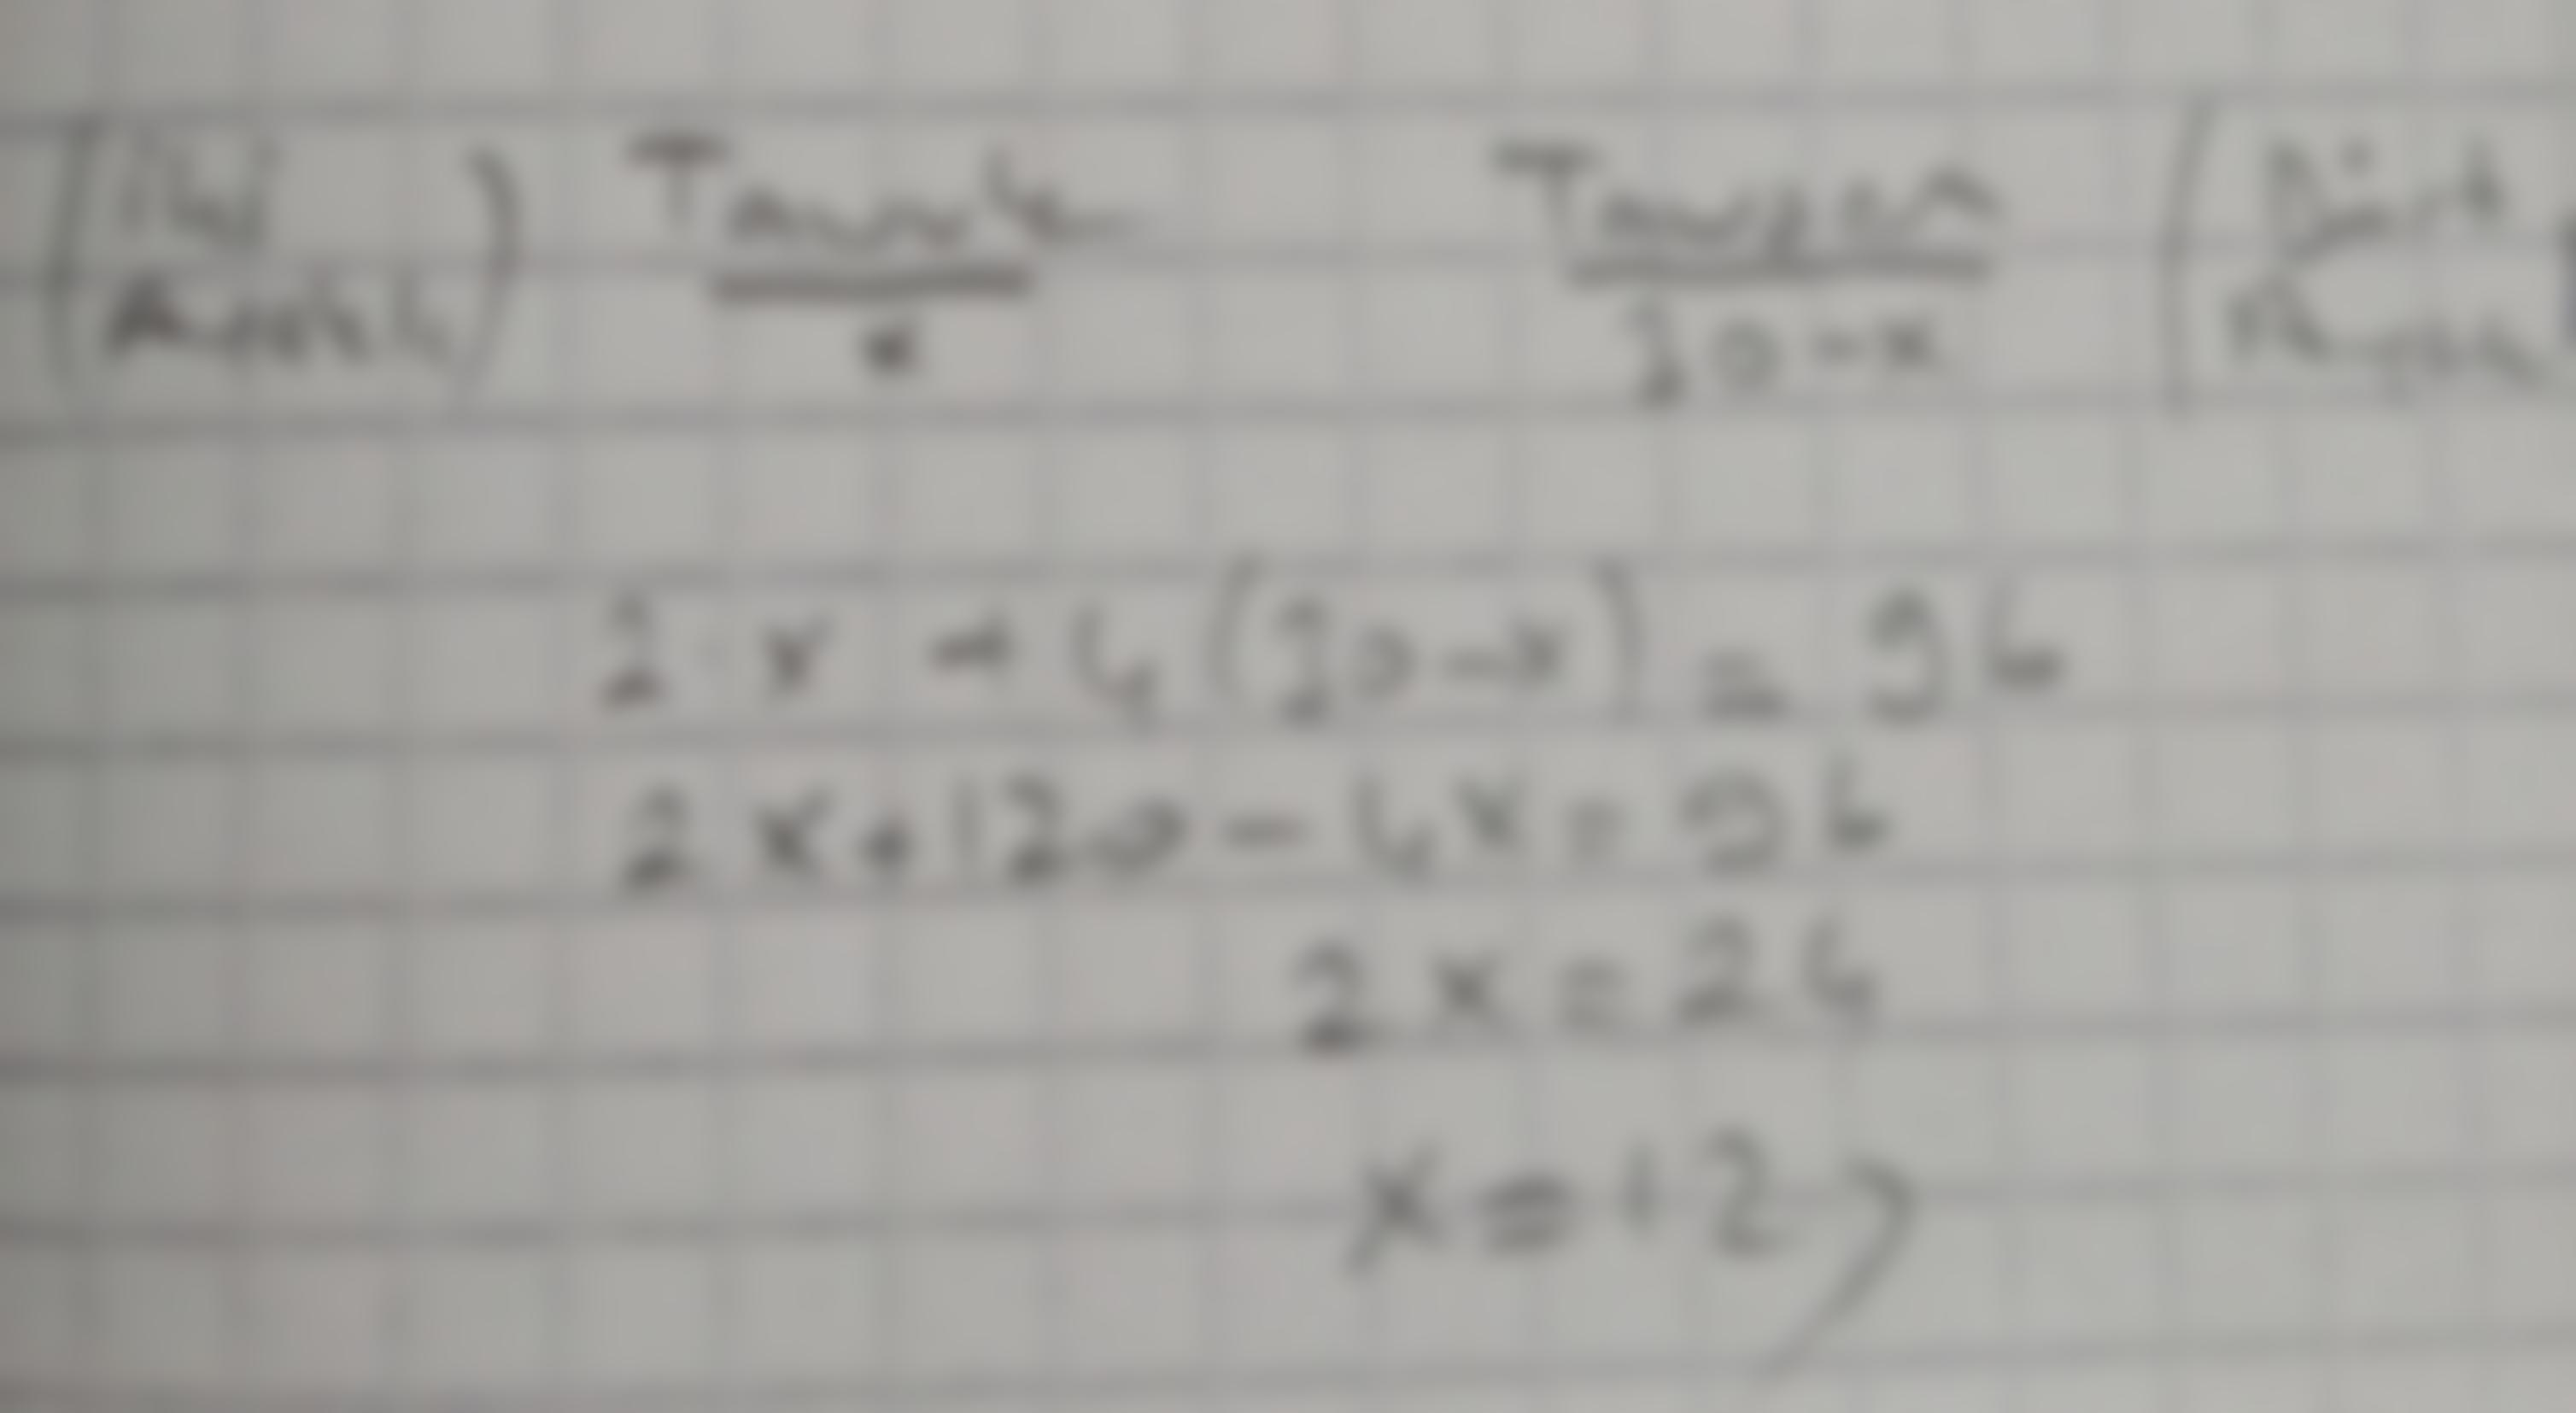 (iki Ayaklı) Tavuk Tavşan (Dört Ayaklı
x 30-x
2x + 4(30-x) = 96
2x+120 - 4x = 96
2x = 24
x = 12